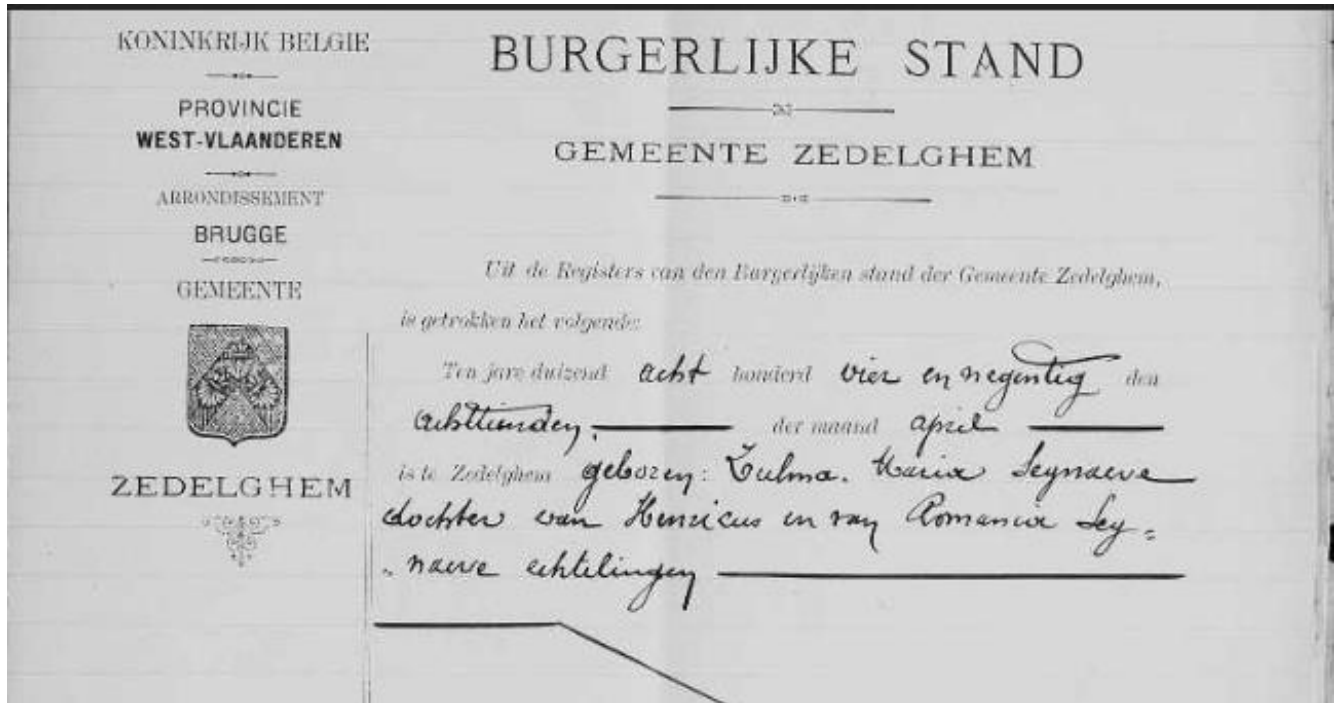 KONINKRIJK BELGIE
PROVINCIE
WEST-VLAANDEREN
ARRONDISSEMENT
BRUGGE
GEMEENTE
ZEDELGHEM
BURGERLIJKE STAND
GEMEENTE ZEDELGHEM
Uit de Registers van den Burgerlijken stand der Gemeente Zedelghem,
is getrokken het volgende:
Ten jare duizend acht honderd vier en negentig den
achttienden, der maand april
is te Zedelghem geboren: Zulma. Maria Seynaeve
dochter van Henricus en van Romania Sey=
naeve echtelingen